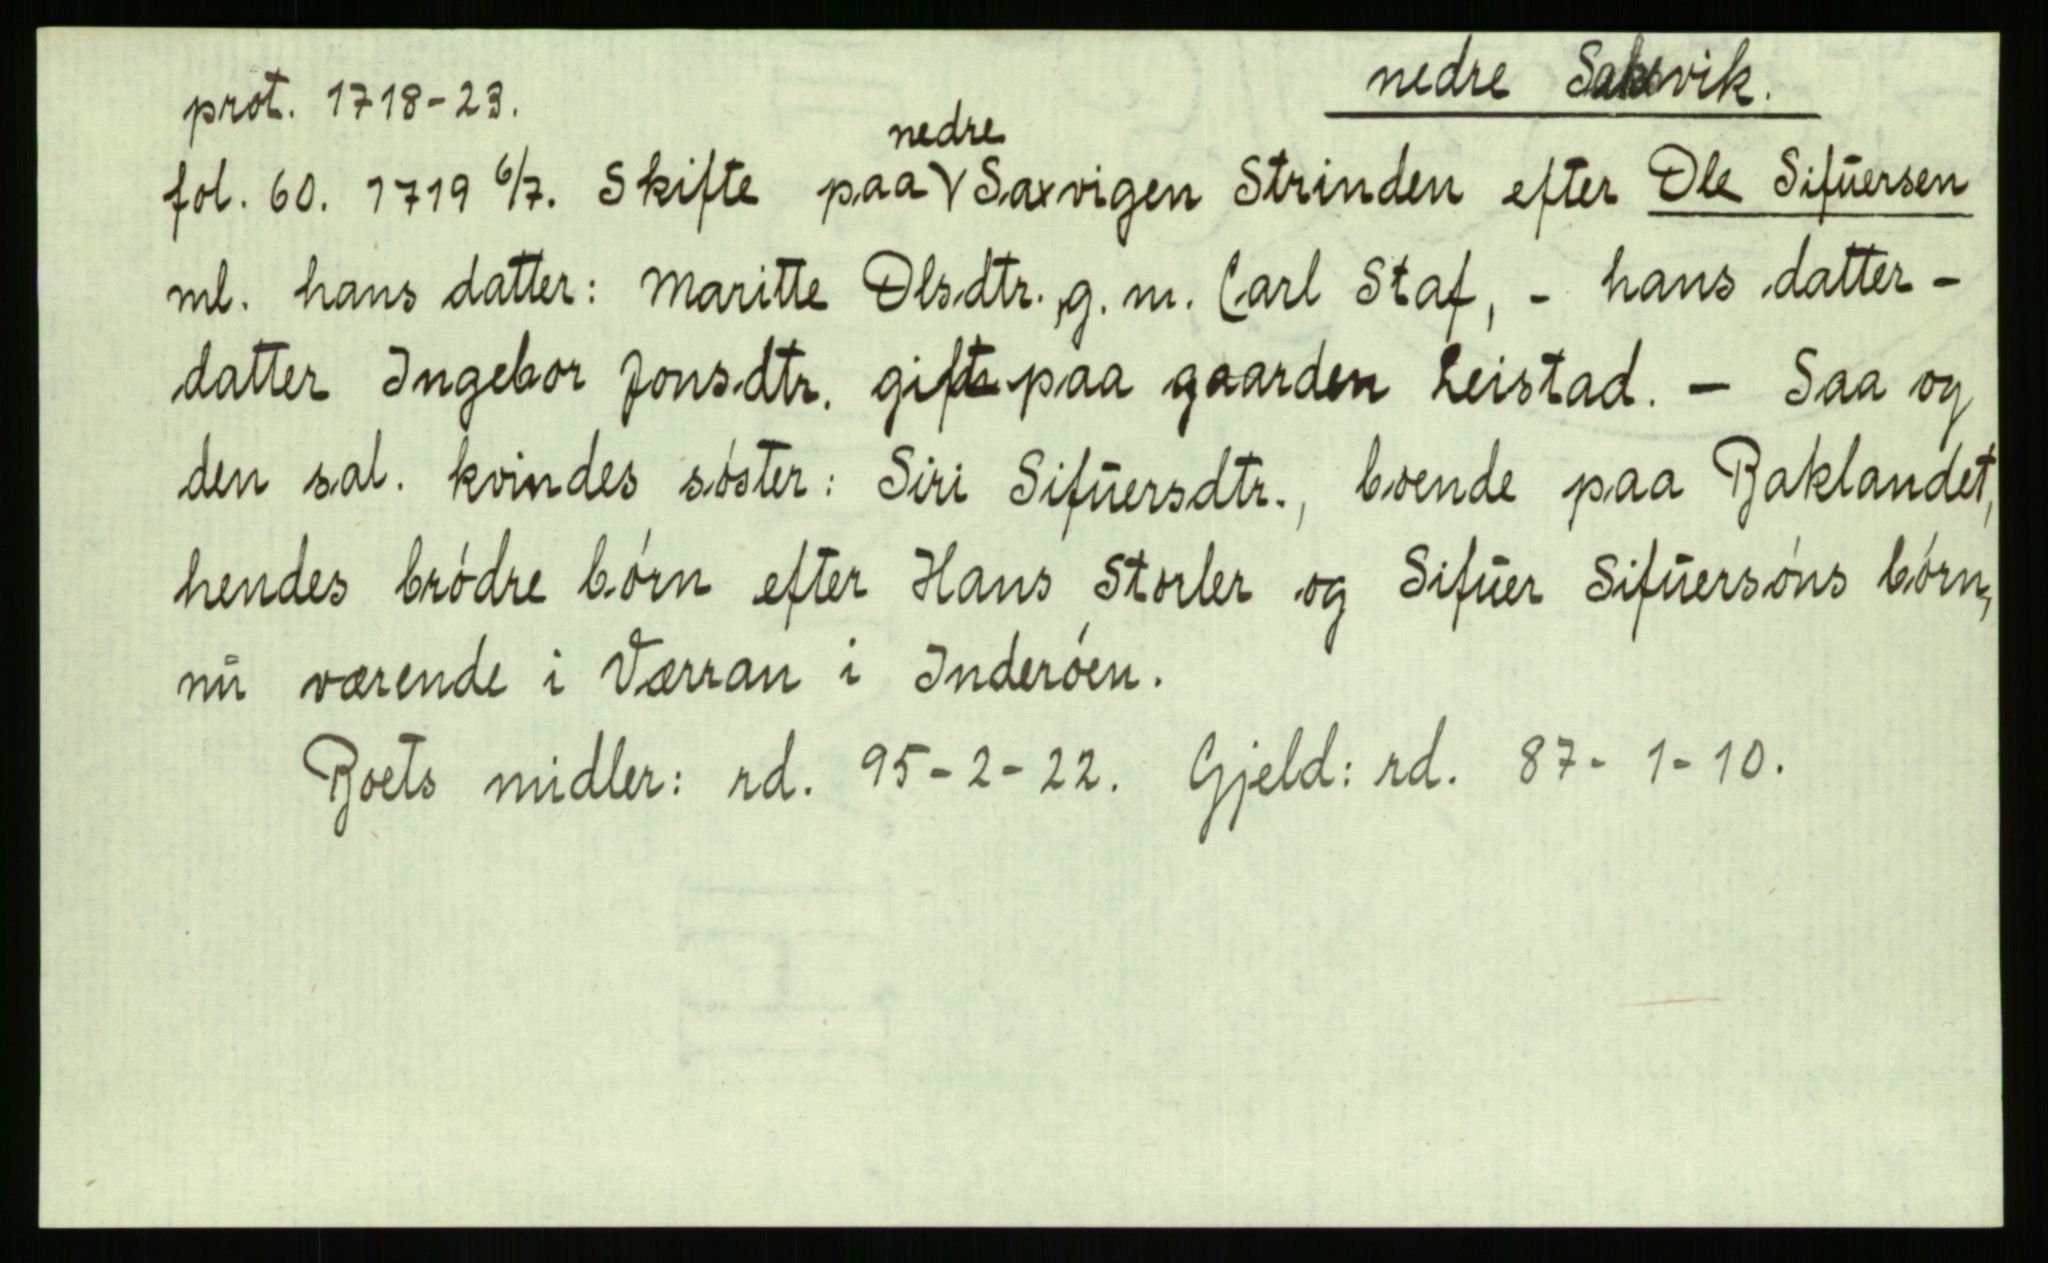 nedre Saksvik.
prot. 1718-23.
nedre
fol. 60. 1719 6/7. Skifte paa V Saxvigen Strinden efter Ole Sifuersen
ml. hans datter: Maritte Olsdtr. g. m. Carl Staf, - hans datter-
datter Ingebor Jonsdtr. gift paa gaarden Leistad. - Saa og
den sal. kvindes søster: Siri Sifuersdtr., boende paa Baklandet,
hendes brødre børn efter Hans Storler og Sifuer Sifuersøns børn,
nu værende i Værran i Inderøen.
Boets midler: rd. 95-2-22. Gjeld: rd. 87-1-10.